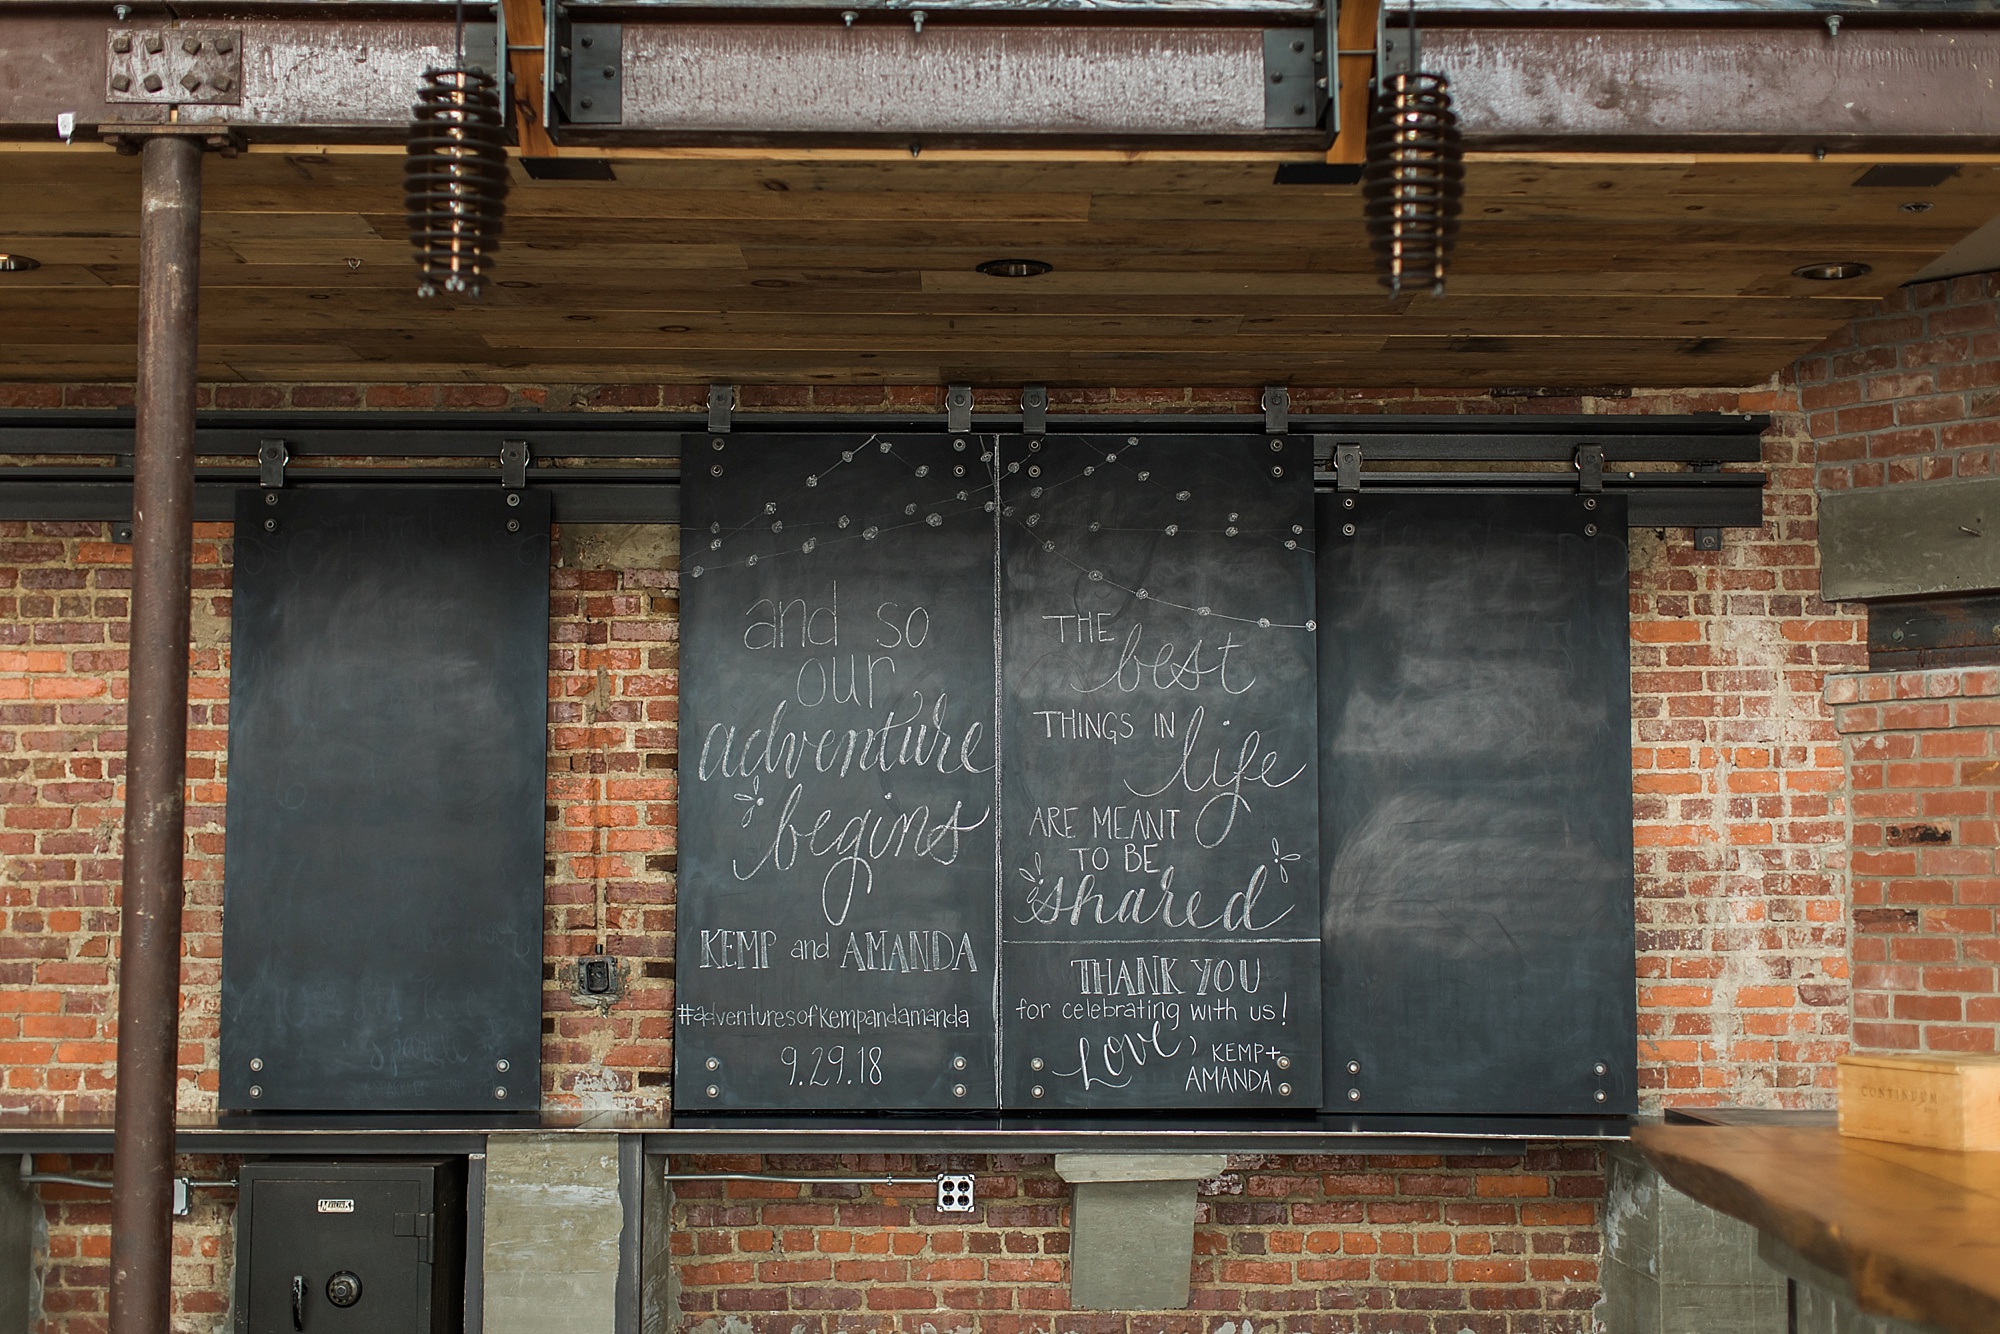 and so
our
adventure
begins
KEMP and AMANDA
#adventuresofkempandamanda
9.29.18
THE best
THINGS IN life
ARE MEANT
TO BE
shared
THANK YOU
for celebrating with us!
Love, KEMP+
AMANDA
CONTINUUM
sparkle